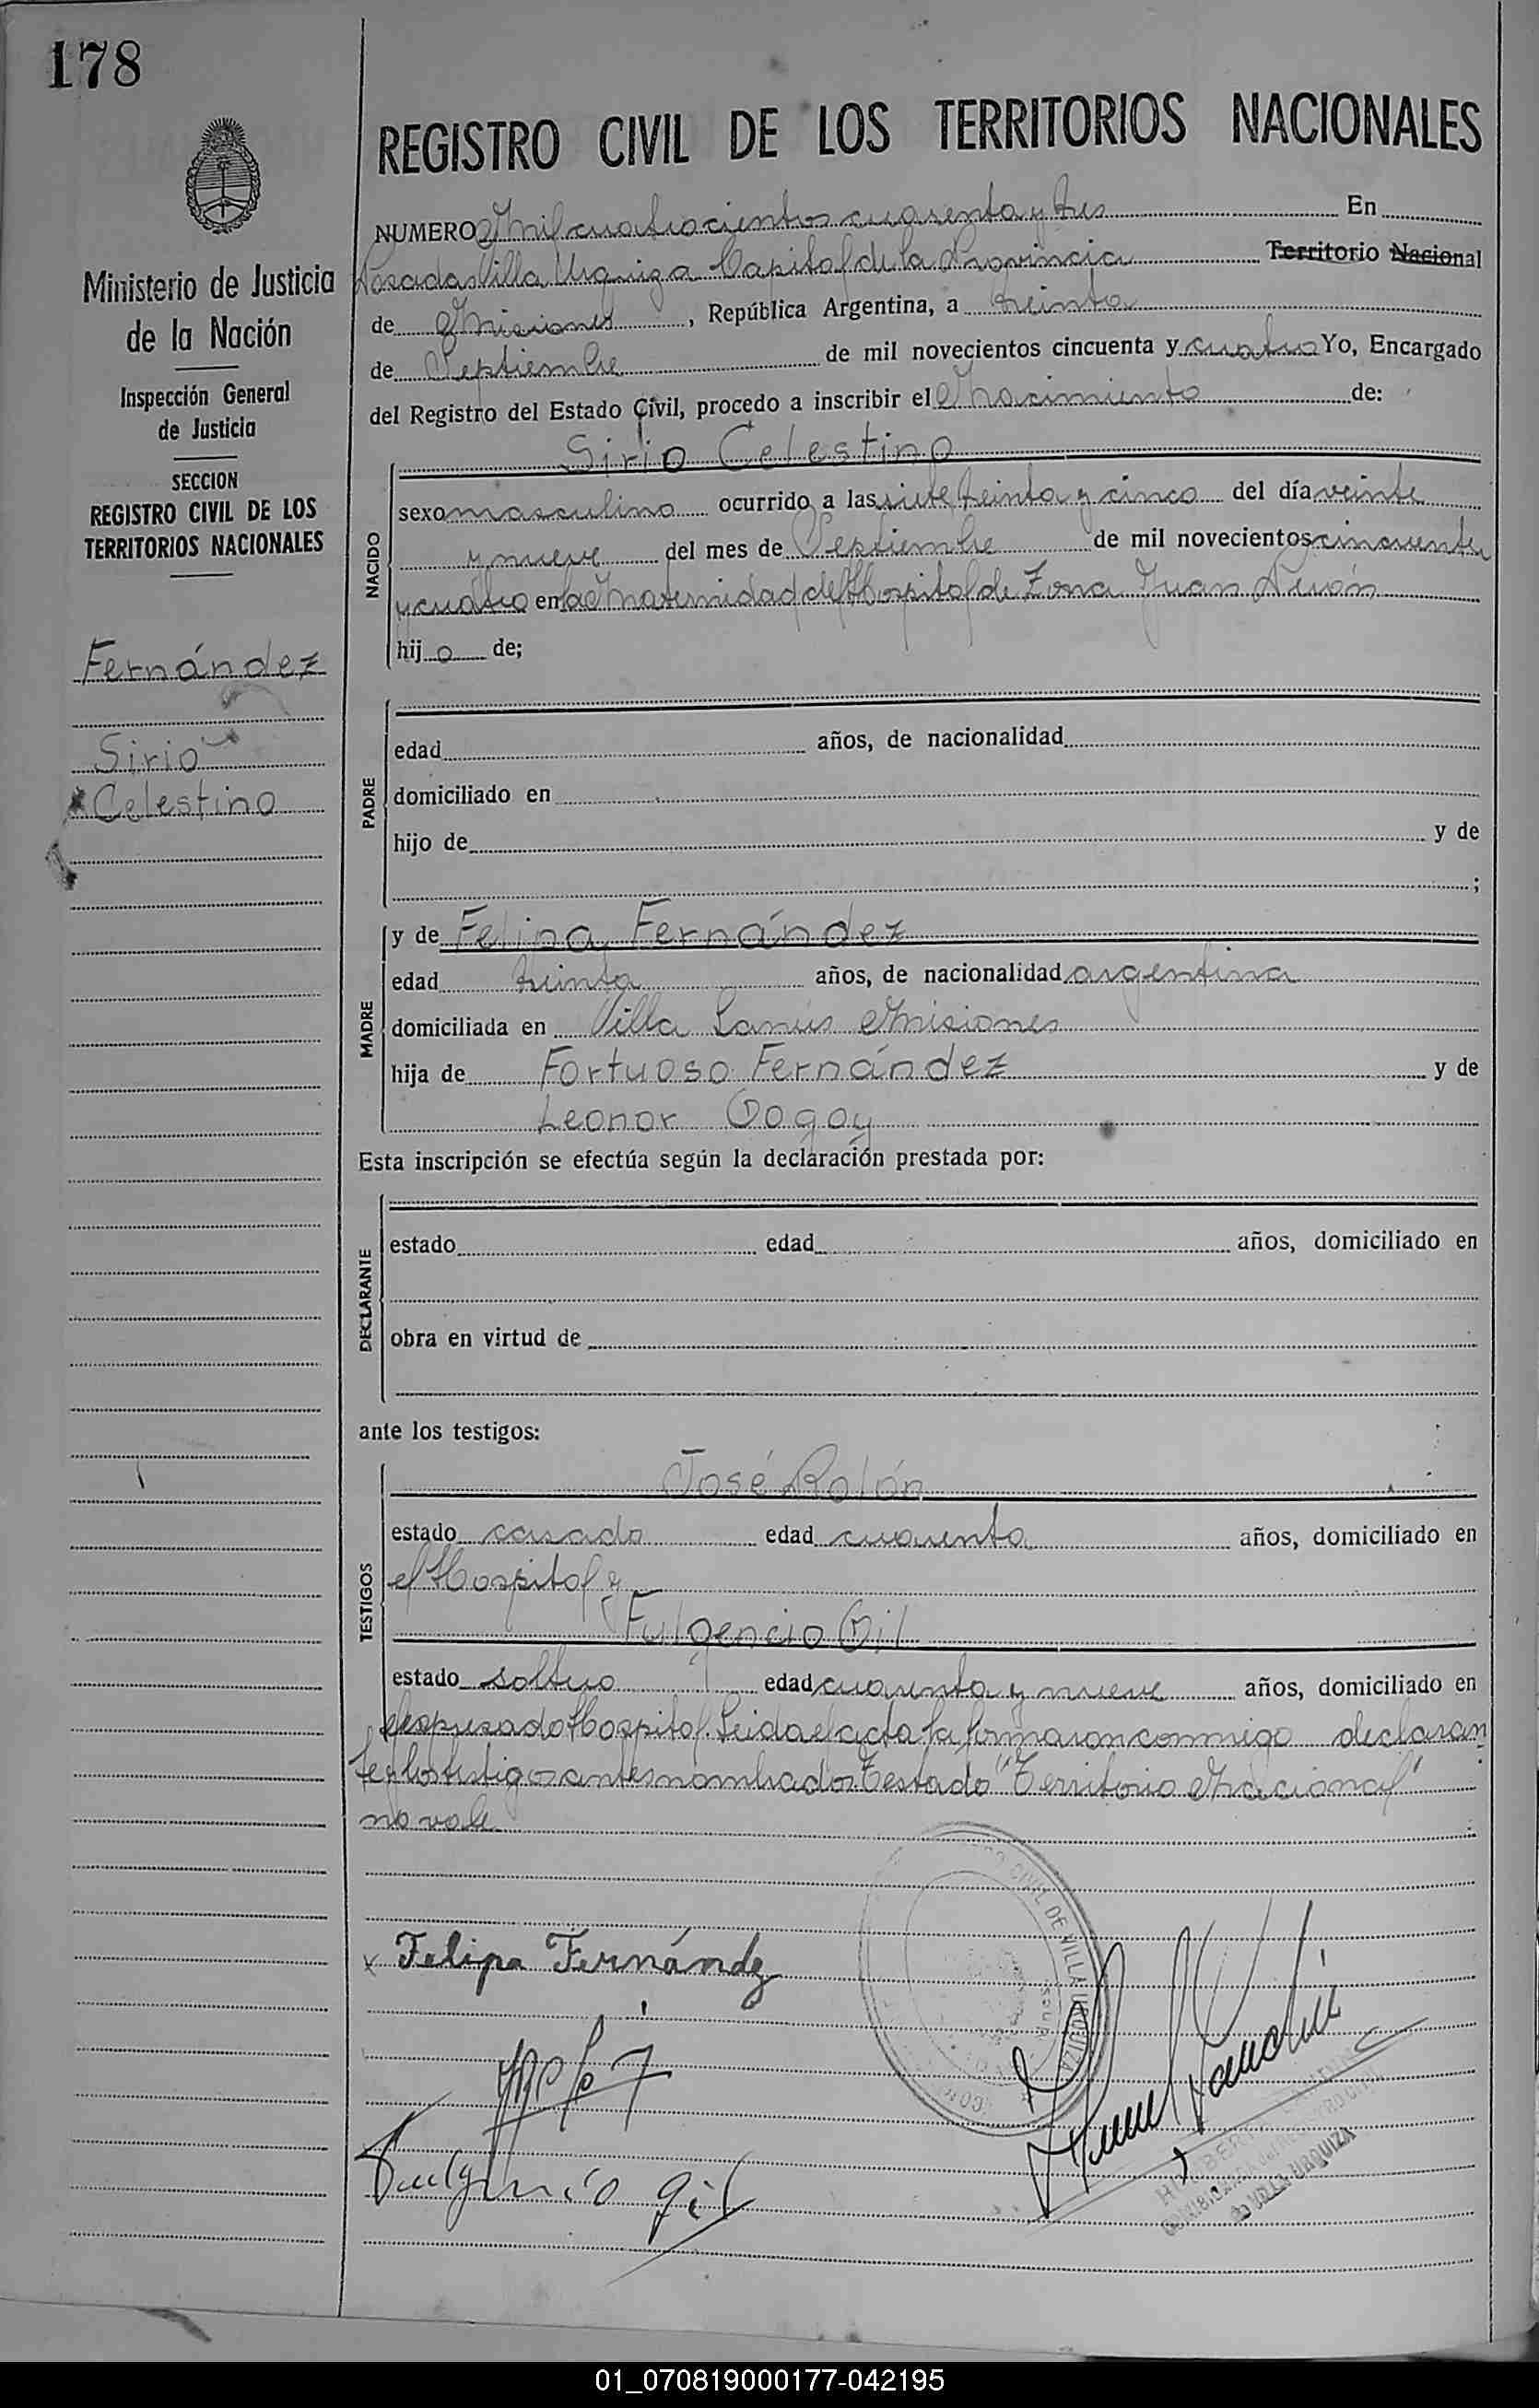 178
REGISTRO CIVIL DE LOS TERRITORIOS NACIONALES
Ministerio de Justicia
de la Nación
Inspección General
de Justicia
SECCION
REGISTRO CIVIL DE LOS
TERRITORIOS NACIONALES
Fernández
Sirio
Celestino
NUMERO Mil cuatrocientos cuarenta y tres En
Posadas Villa Urquiza Capital de la Provincia Territorio Nacional
de Misiones, República Argentina, a treinta
de Septiembre de mil novecientos cincuenta y cuatro Yo, Encargado
del Registro del Estado Civil, procedo a inscribir el Nacimiento de:
Sirio Celestino
NACIDO
sexo masculino ocurrido a las siete treinta y cinco del día veinte
y nueve del mes de Septiembre de mil novecientos cincuenta
y cuatro en la Maternidad del Hospital de Zona Juan Perón
hijo de;
PADRE
edad años, de nacionalidad
domiciliado en
hijo de y de
;
MADRE
y de Felipa Fernández
edad treinta años, de nacionalidad argentina
domiciliada en Villa Lanús Misiones
hija de Fortuoso Fernández y de
Leonor Gogoy
Esta inscripción se efectúa según la declaración prestada por:
DECLARANTE
estado edad años, domiciliado en
obra en virtud de
ante los testigos:
TESTIGOS
José Rolón
estado casado edad cuarenta años, domiciliado en
el Hospital y
Fulgencio Gil
estado soltero edad cuarenta y nueve años, domiciliado en
el expresado Hospital. Leida el acta la firmaron conmigo declaran
te y los testigos antes nombrados. Testado "Territorio Nacional"
no vale
Felipa Fernández
Fulgencio Gil
CIVIL DE VILLA URQUIZA
de VILLA URQUIZA
01_070819000177-042195